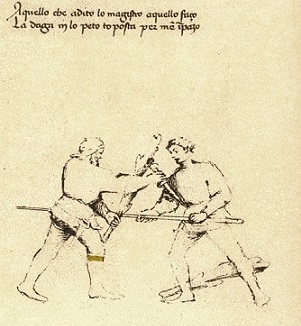 Aquello che adito lo magistro aquello faço
La daga in lo peto to posta per mē īpaço